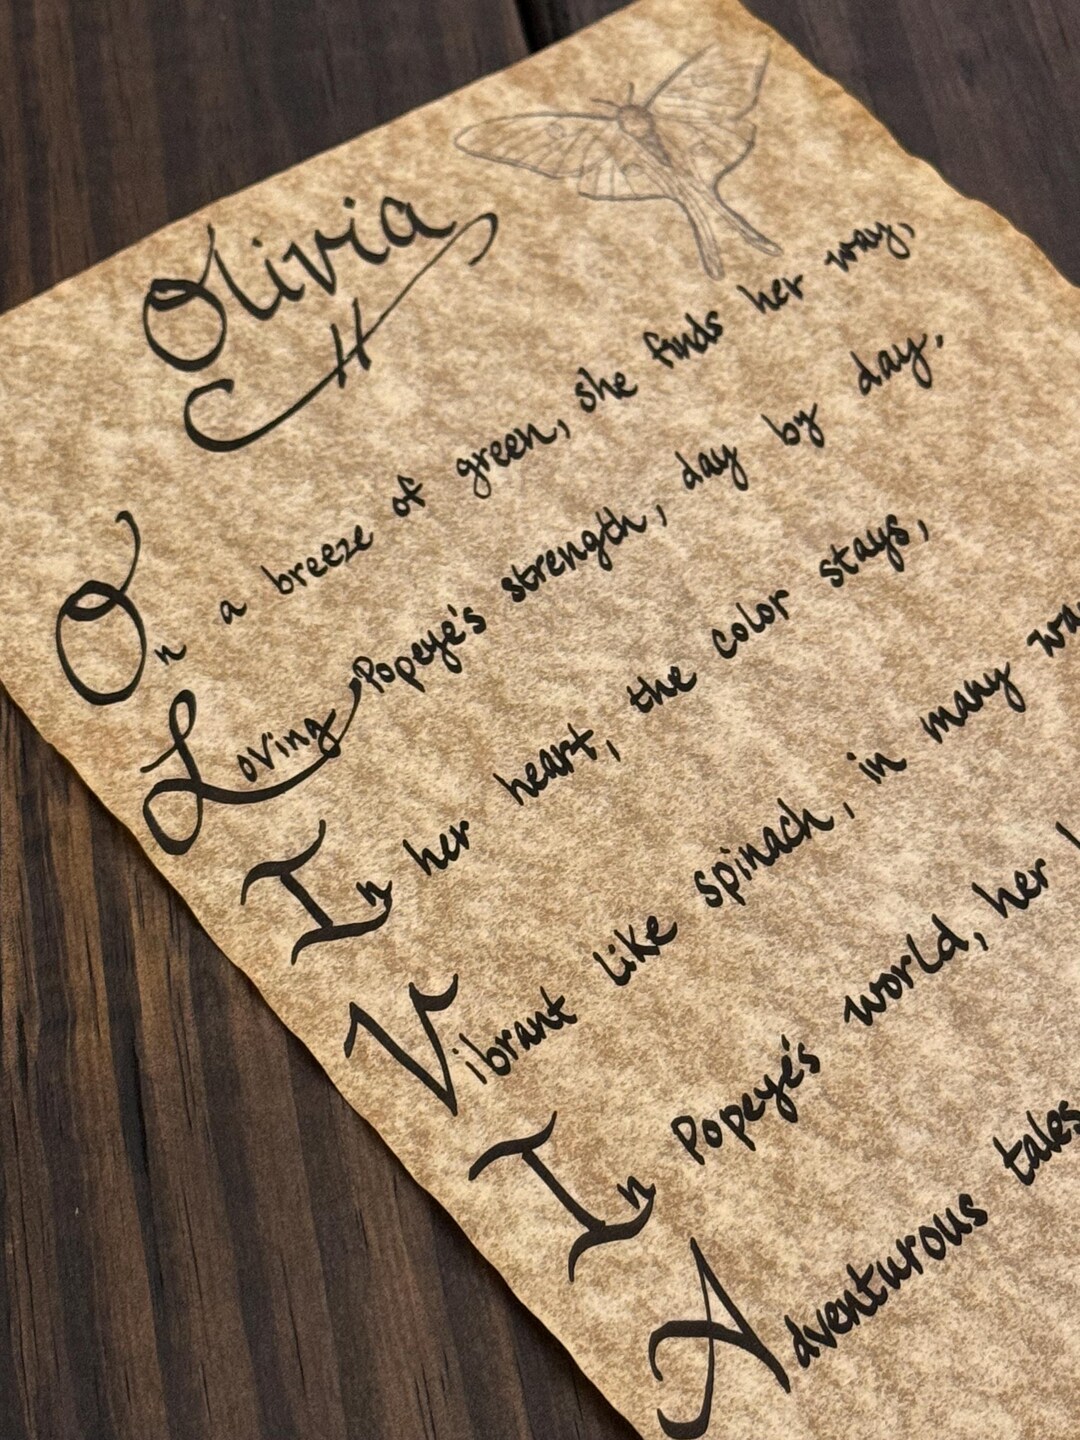 Olivia
On a breeze of green, she finds her way,
Loving Popeye's strength, day by day.
In her heart, the color stays,
Vibrant like spinach, in many
In Popeye's world, her
Adventurous tales